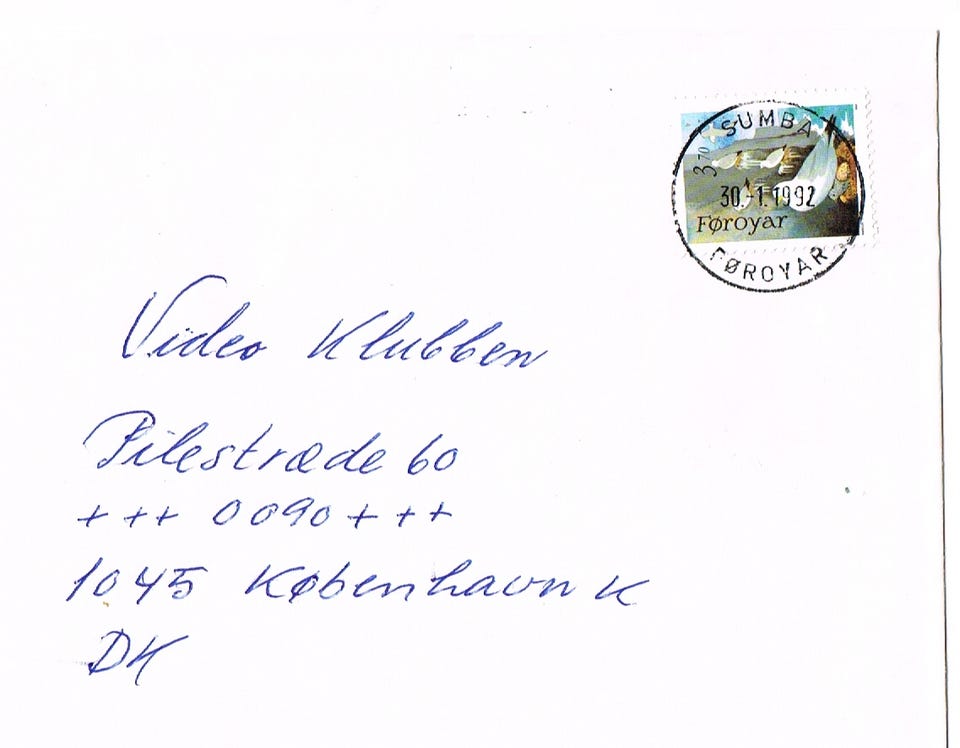 SUMBA
3.70
30.-1.1992
Føroyar
FØROYAR
Video Klubben
Pilestræde 60
+++ 0090 +++
1045 København K
DK